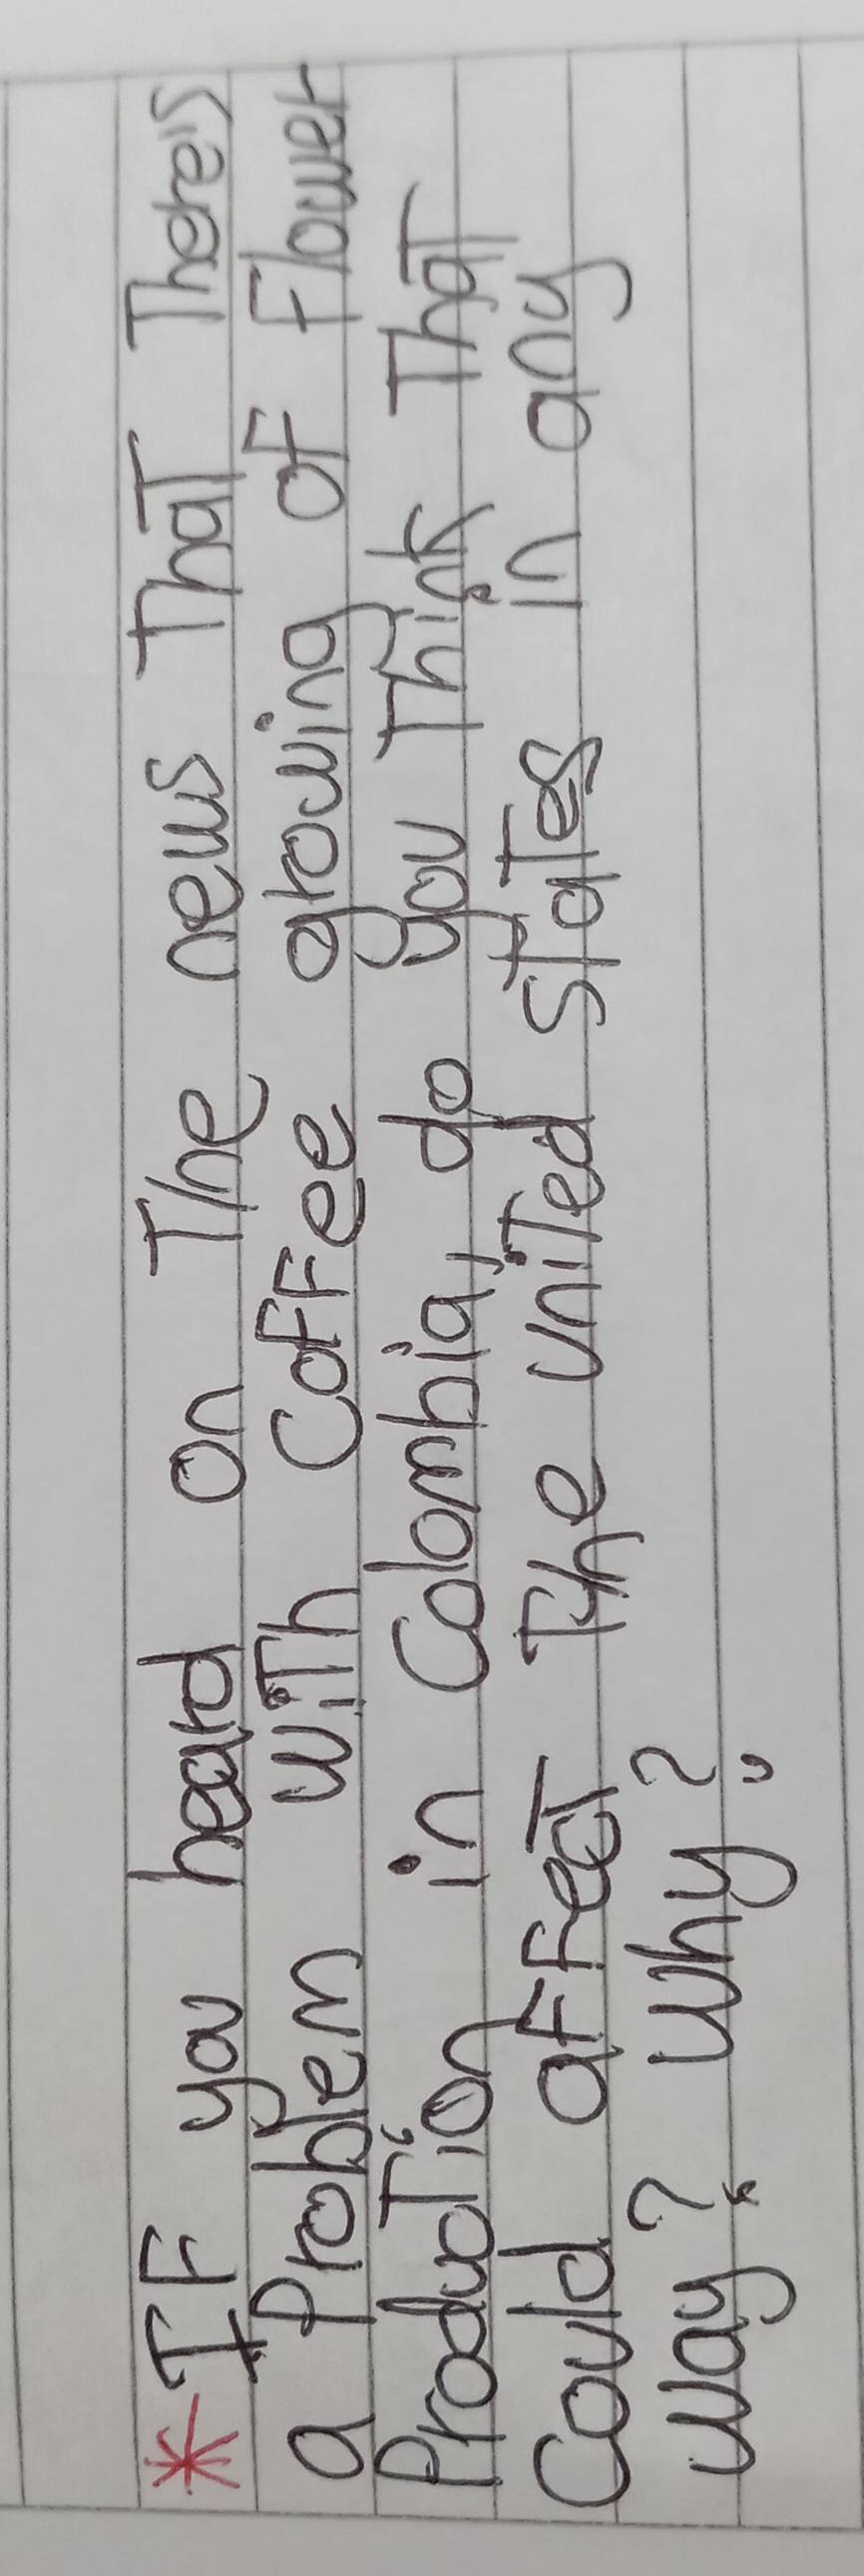 * IF you heard on The news ThaT There's
a Problem wiTh CoFFee growing oF Flower
ProducTion in Colombia, do you Think ThaT
Could aFFecT The uniTed sTaTes in any
way? Why?